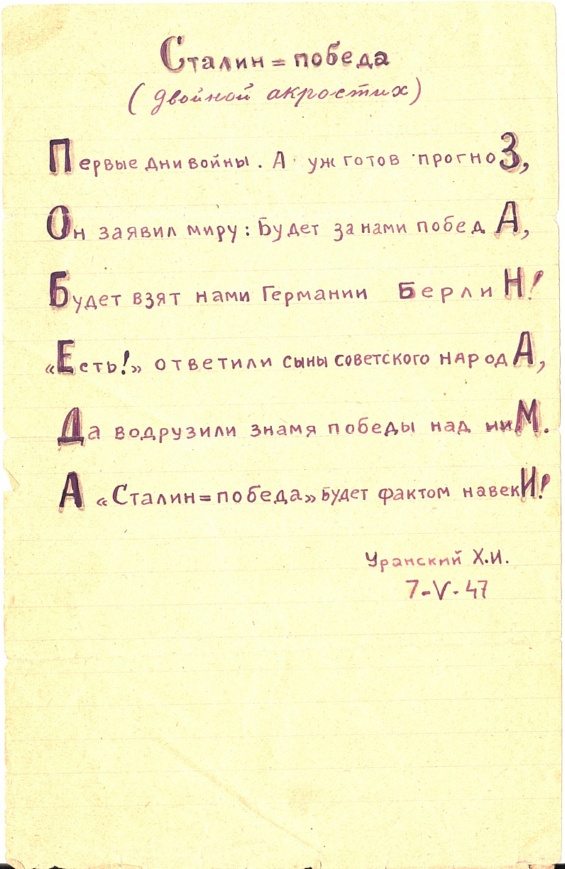 Сталин = победа
(двойной акростих)
Первые дни войны. А уж готов прогноЗ,
Он заявил миру: Будет за нами победА,
Будет взят нами Германии БерлиН!
«Есть!» ответили сыны советского народА,
Да водрузили знамя победы над ниМ.
А «Сталин=победа» будет фактом навекИ!
Уранский Х.И.
7-V-47